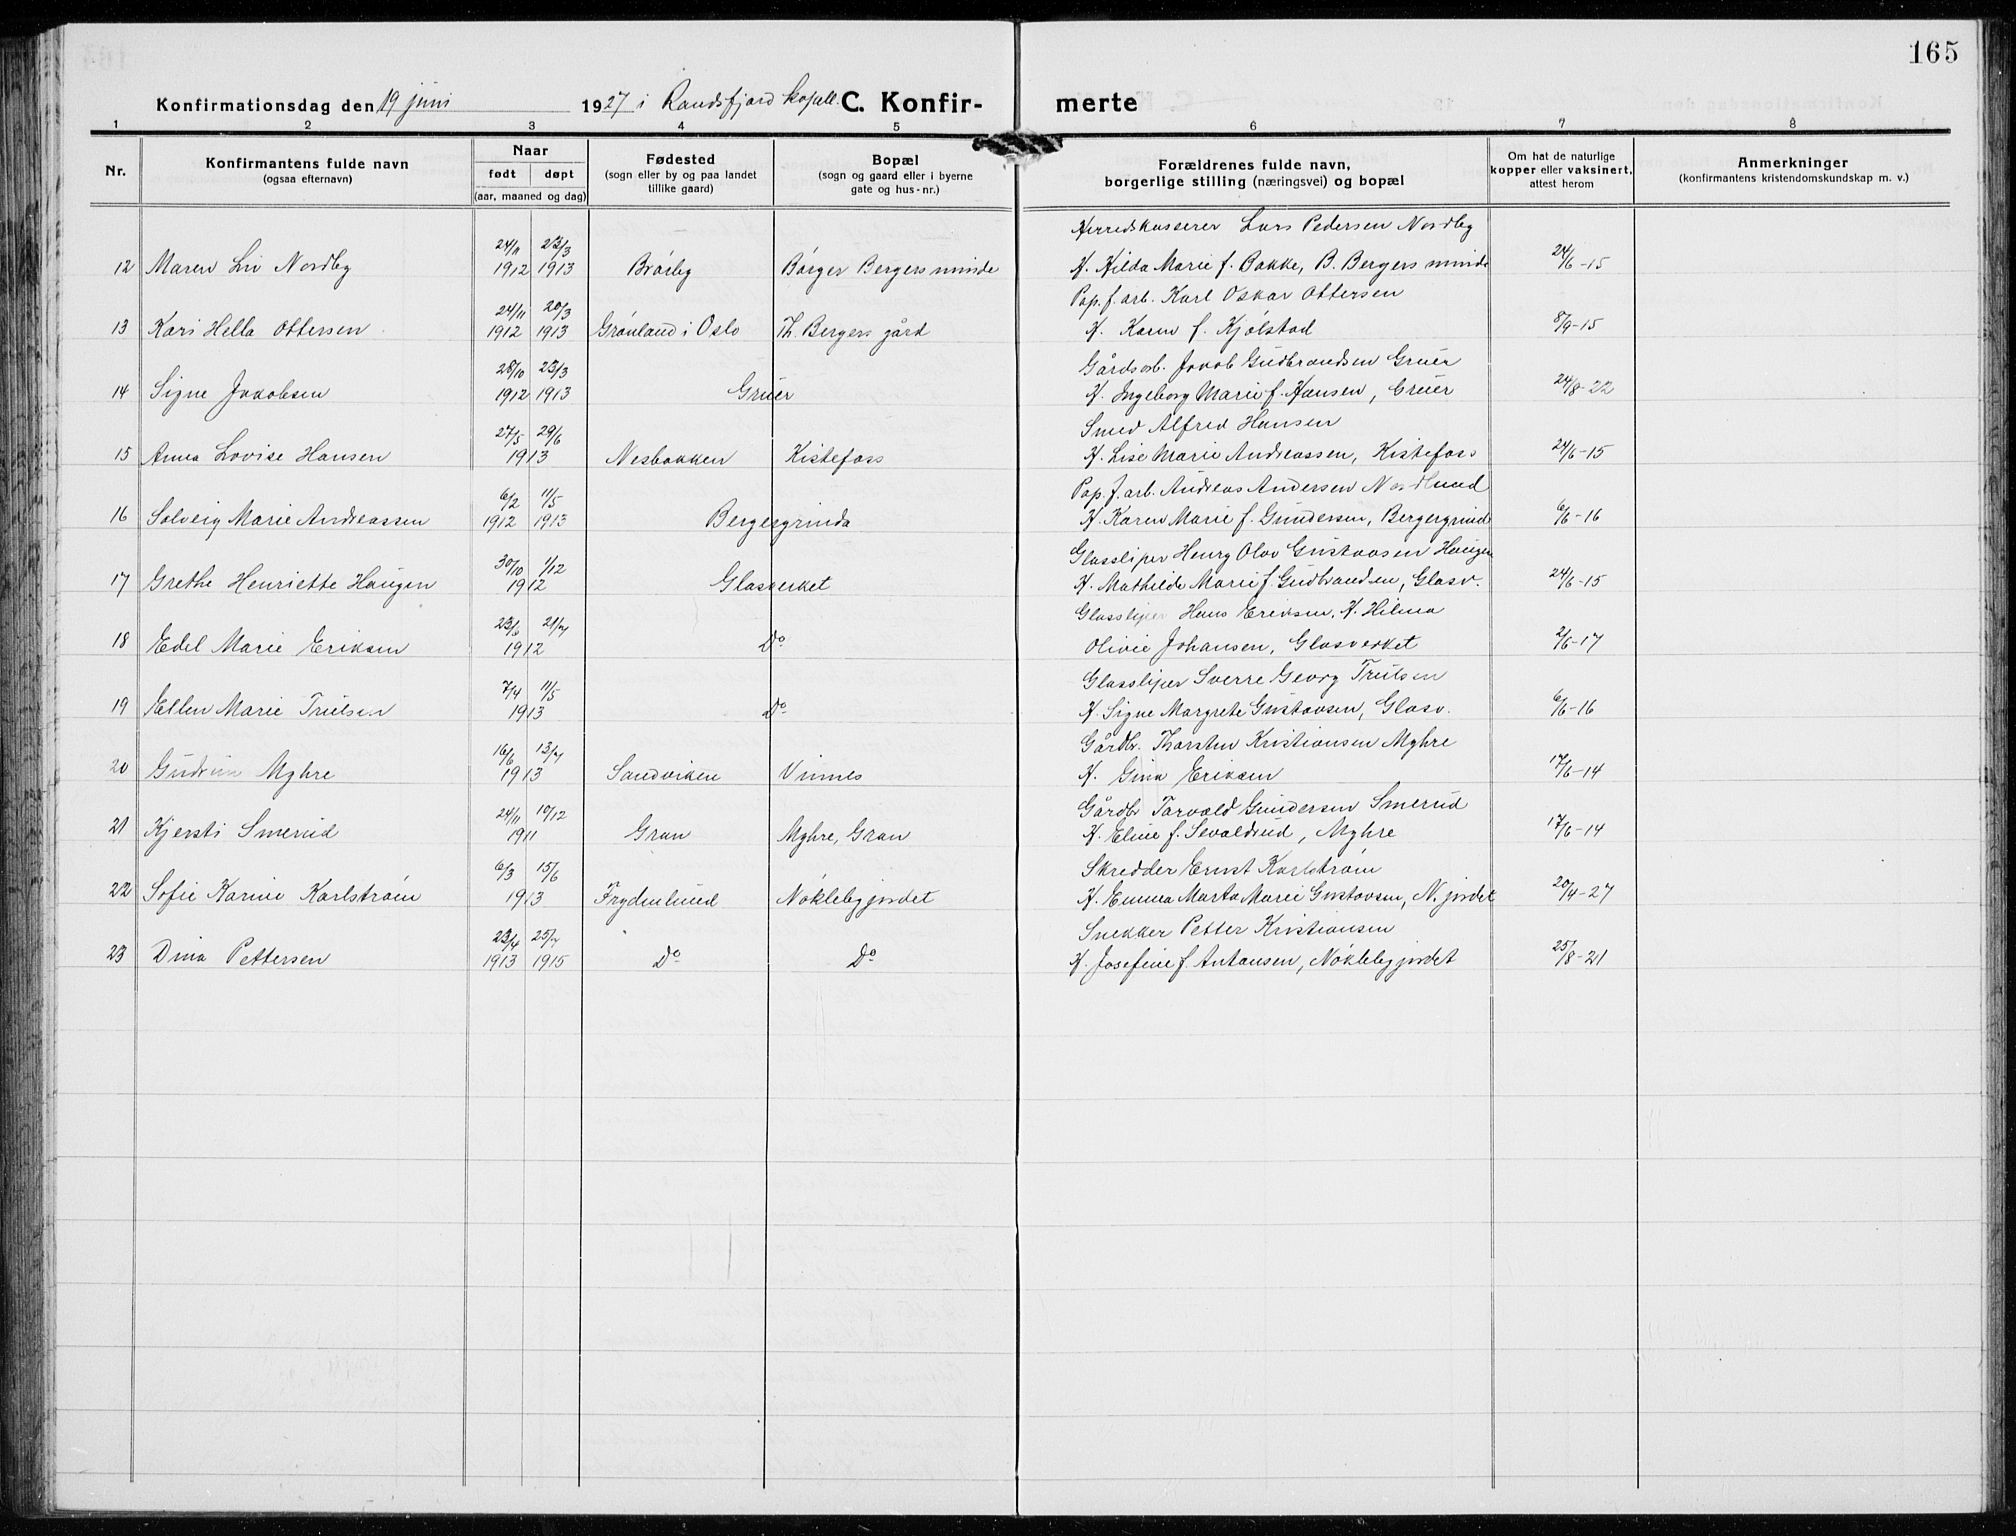 165
Konfirmationsdag den 19 juni 1927 i Randsfjord kapell. C. Konfirmerte
1 2 3 4 5 6 7 8
Nr.
Konfirmantens fulde navn
(ogsaa efternavn)
Naar
født døpt
(aar, maaned og dag)
Fødested
(sogn eller by og paa landet
tillike gaard)
Bopæl
(sogn og gaard eller i byerne
gate og hus-nr.)
Forældrenes fulde navn,
borgerlige stilling (næringsvei) og bopæl
Om hat de naturlige
kopper eller vaksinert,
attest herom
Anmerkninger
(konfirmantens kristendomskundskap m. v.)
24/11 23/3 Herredskasserer Lars Pedersen Nordby
12 Maren Liv Nordby 1912 1913 Bråby Børger Bergersminde H. Hilda Marie f. Bakke, B. Bergersminde 24/6-15
24/11 20/3 Pap.f.arb. Karl Oskar Ottersen
13 Kari Hella Ottersen 1912 1913 Grønland i Oslo Th. Bergers gård H. Karen f. Kjølstad 8/9-15
28/10 23/3 Gårdsarb. Jakob Gudbrandsen Gruer
14 Signe Jakobsen 1912 1913 Gruer H. Ingeborg Marie f. Hansen, Gruer 24/8-22
27/5 29/6 Smed Alfred Hansen
15 Anna Lovise Hansen 1913 Nesbakken Kistefoss H. Lise Marie Andreassen, Kistefoss 24/6-15
6/2 11/5 Pap.f.arb. Andreas Andersen Nordlund
16 Solveig Marie Andreassen 1912 1913 Bergergrinda H. Karen Marie f. Gundersen, Bergergrind 6/6-16
30/10 1/12 Glassliper Henry Olav Gustavsen Haugen
17 Grethe Henriette Haugen 1912 Glassverket H. Mathilde Marie f. Gudbrandsen, Glasv. 24/6-15
23/6 21/7 Glassliper Hans Eriksen, H. Hilma
18 Edel Marie Eriksen 1912 Do Olivie Johansen, Glasverket 2/6-17
7/4 11/5 Glassliper Sverre Georg Trulsen
19 Ellen Marie Trulsen 1913 Do H. Signe Margrete Gustavsen, Glasv. 6/6-16
16/6 13/7 Gårdbr. Thorsten Kristiansen Myhre
20 Gudrun Myhre 1913 Sandviken Vinnes H. Gina Eriksen 17/6-14
24/11 10/12 Gårdbr Torvald Gundersen Smerud
21 Kjersti Smerud 1911 Gran Myhre, Gran H. Eline f. Sevaldrud, Myhre 17/6-14
6/3 15/6 Skredder Ernst Karlstrøm
22 Sofie Karine Karlstrøm 1913 Frydenlund Nøklebyjordet H. Emma Marta Marie Gustavsen, N. jordet 20/4-27
23/4 25/7 Snekker Petter Kristiansen
23 Dina Pettersen 1913 1915 Do Do H. Josefine f. Antonsen, Nøklebyjordet 25/8-21